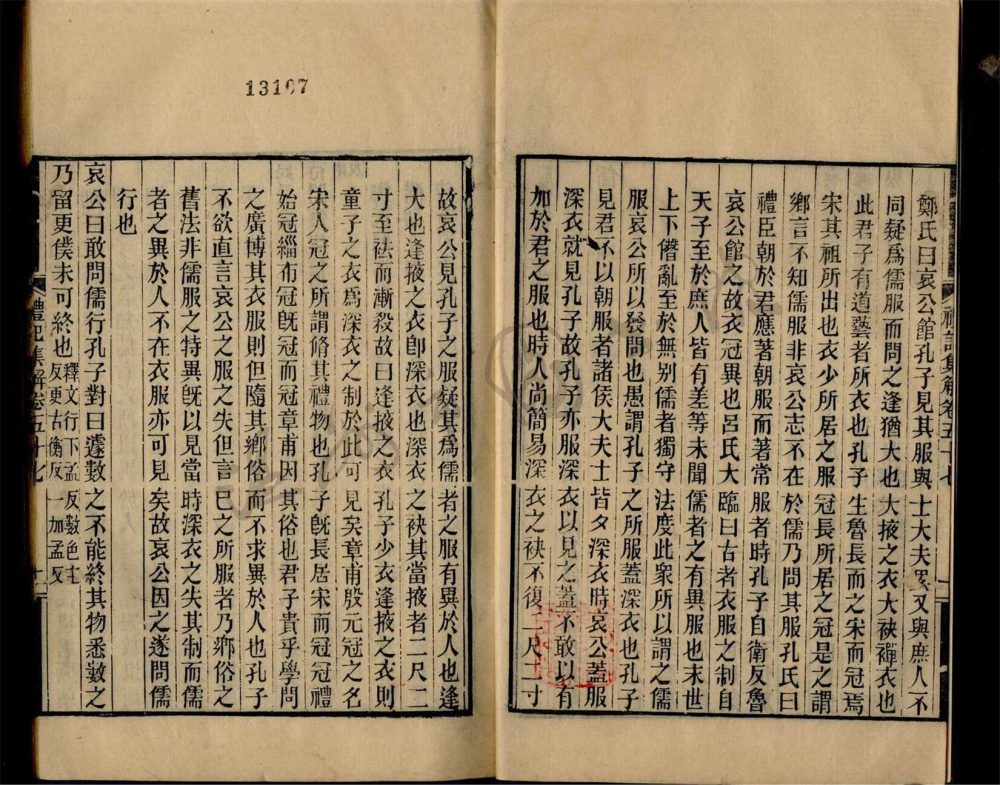 鄭氏曰哀公館孔子見其服與士大夫異又與庶人不
同疑爲儒服而問之逢猶大也大掖之衣大袂襌衣也
此君子有道藝者所衣也孔子生魯長而之宋而冠焉
宋其祖所出也衣少所居之服冠長所居之冠是之謂
鄉言不知儒服非哀公志不在於儒乃問其服孔氏曰
禮臣朝於君應著朝服而著常服者時孔子自衛反魯
哀公館之故衣冠異也呂氏大臨曰古者衣服之制自
天子至於庶人皆有差等未聞儒者之有異服也末世
上下僭亂至於無别儒者獨守法度此衆所以謂之儒
服哀公所以發問也愚謂孔子之所服蓋深衣也孔子
見君不以朝服者諸侯大夫士皆夕深衣時哀公蓋服
深衣就見孔子故孔子亦服深衣以見之蓋不敢以有
加於君之服也時人尚簡易深衣之袂不復二尺二寸
禮記集解卷五十七
故哀公見孔子之服疑其爲儒者之服有異於人也逢
大也逢掖之衣卽深衣也深衣之袂其當掖者二尺二
寸至袪而漸殺故曰逢掖之衣孔子少衣逢掖之衣則
童子之衣爲深衣之制於此可見矣章甫殷元冠之名
宋人冠之所謂脩其禮物也孔子旣長居宋而冠冠禮
始冠緇布冠旣冠而冠章甫因其俗也君子貴乎學問
之廣博其衣服則但隨其鄉俗而不求異於人也孔子
不欲直言哀公之服之失但言已之所服者乃鄉俗之
舊法非儒服之特異旣以見當時深衣之失其制而儒
者之異於人不在衣服亦可見矣故哀公因之遂問儒
行也
哀公曰敢問儒行孔子對曰遽數之不能終其物悉數之
乃留更僕未可終也釋文行下孟反數色主
反更古衡反一加孟反
禮記集解卷五十七
13107